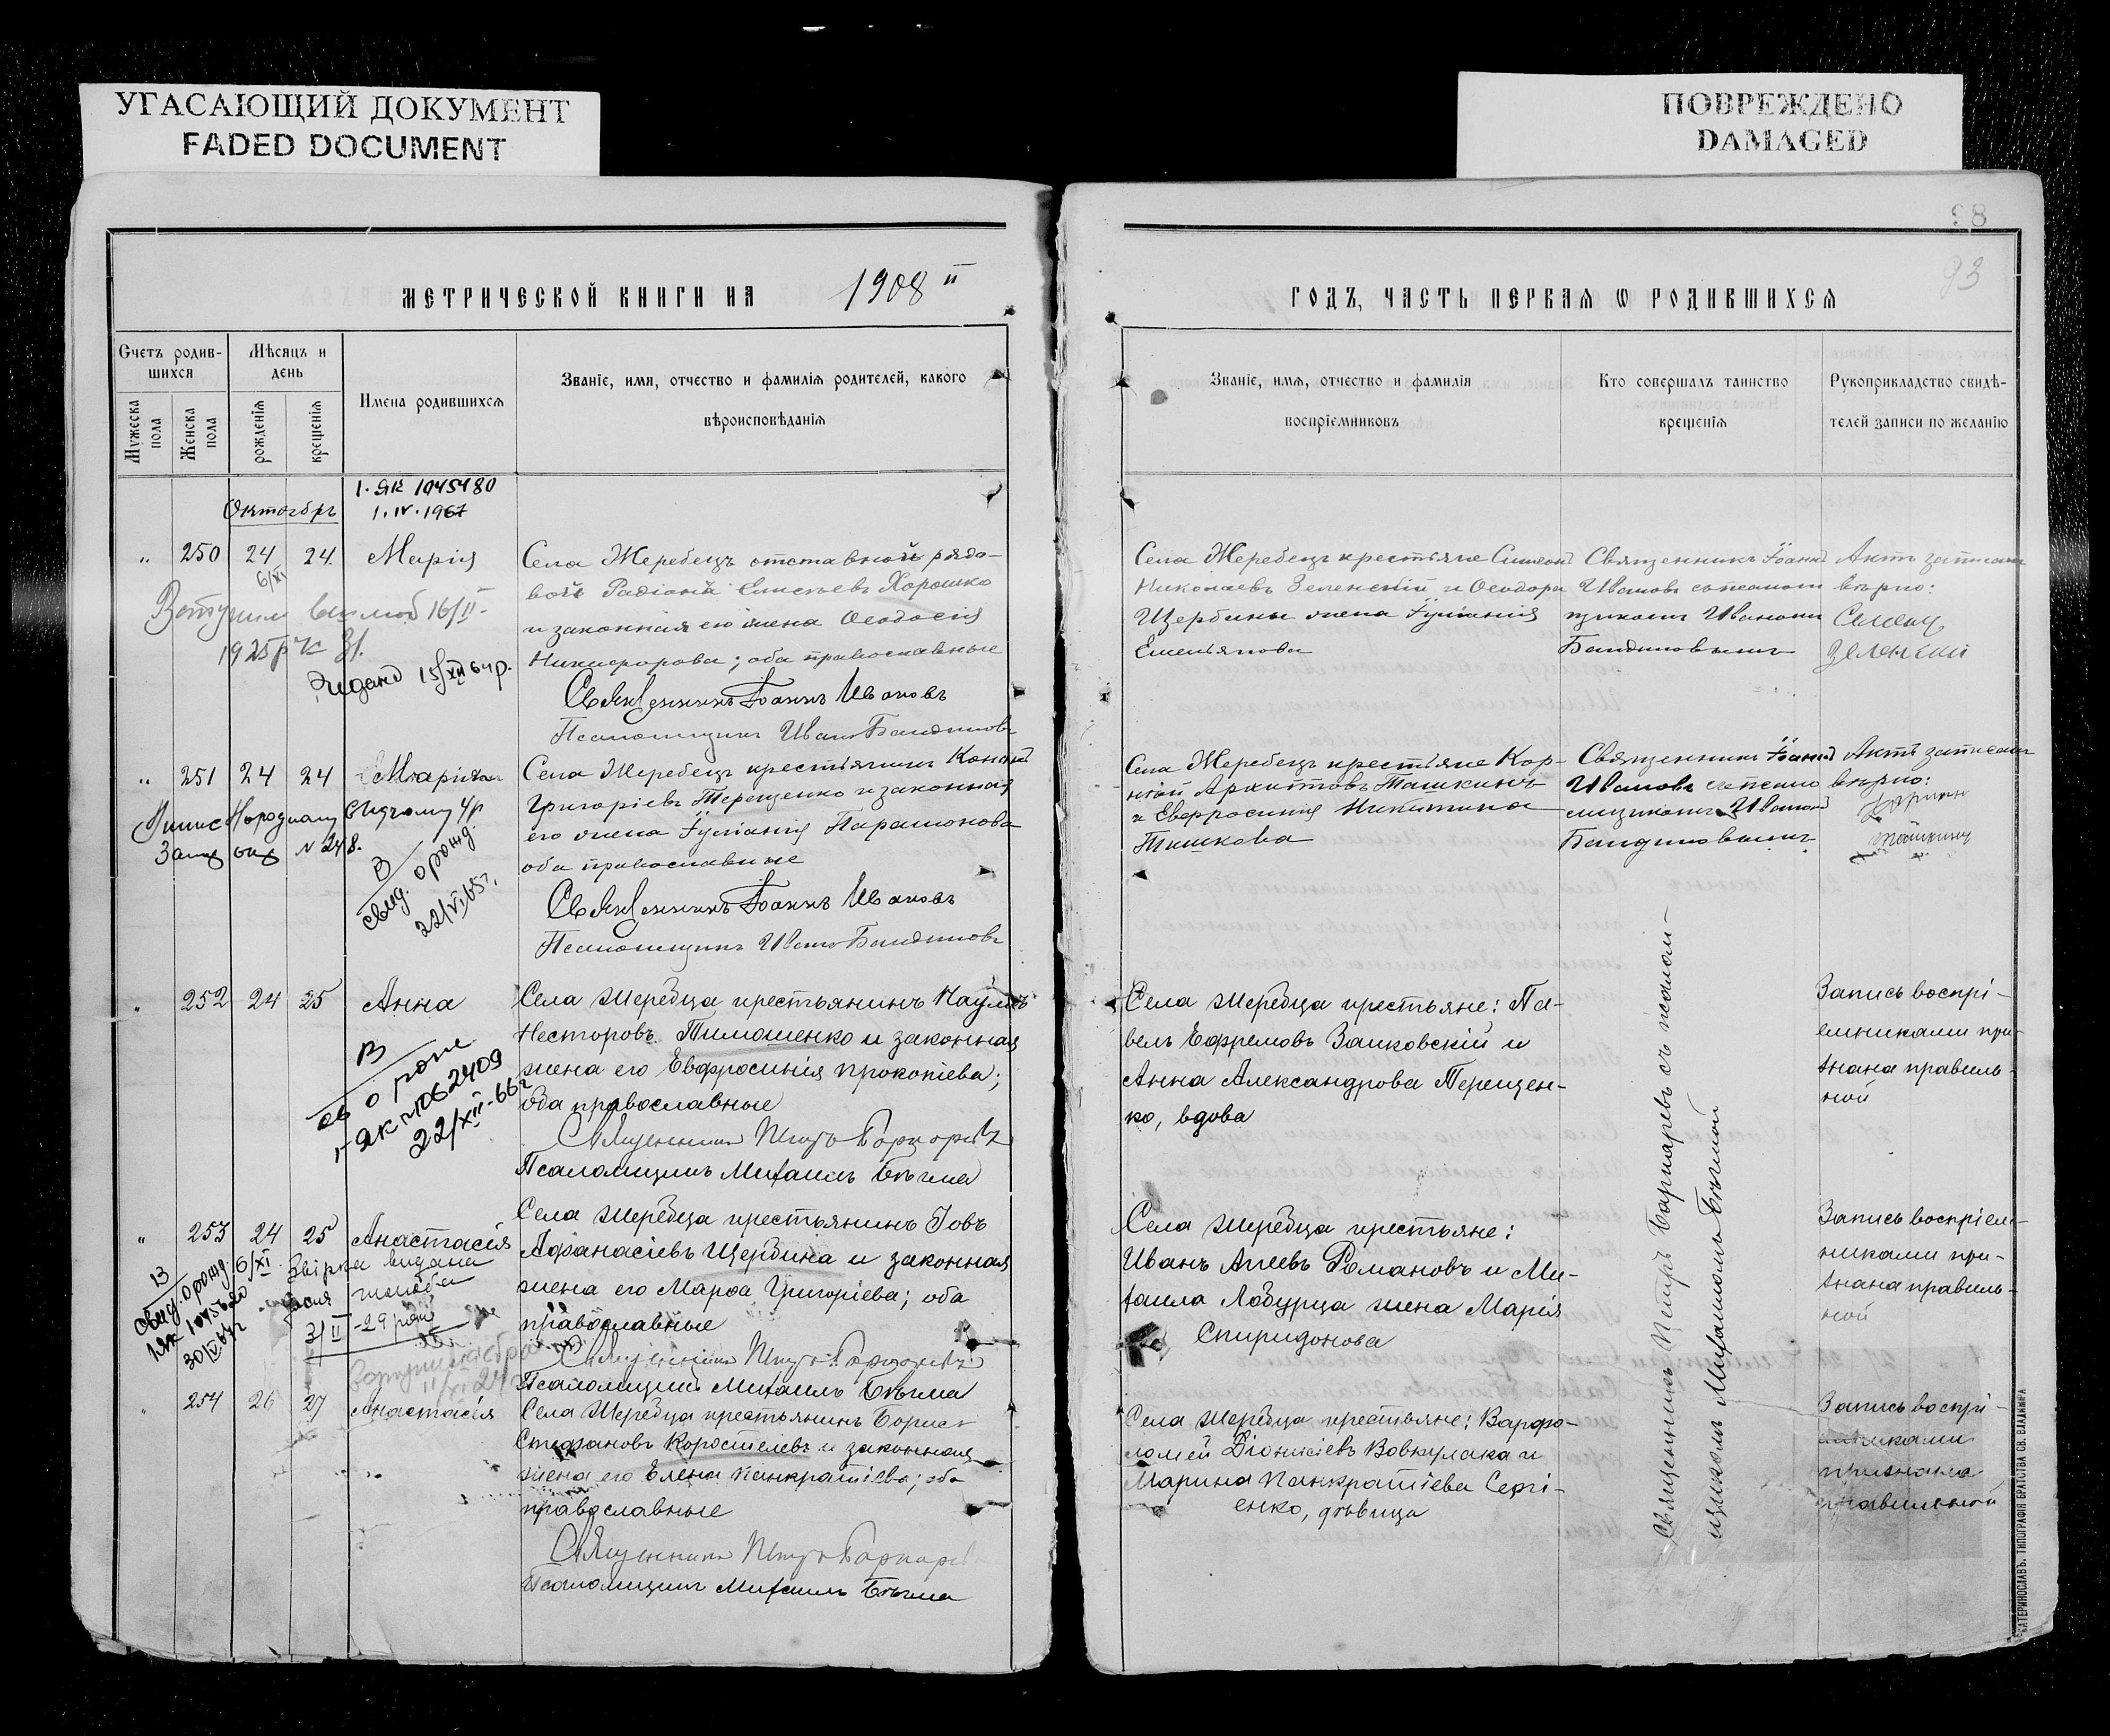 УГАСАЮЩИЙ ДОКУМЕНТ
FADED DOCUMENT
ПОВРЕЖДЕНО
DAMAGED
93
МЕТРИЧЕСКОЙ КНИГИ НА 1908
ГОДЪ, ЧАСТЬ ПЕРВАЯ Ѡ РОДИВШИХСЯ
Счетъ родив-
шихся
Мужеска пола
Женска пола
Мѣсяцъ и
день
рожденія
крещенія
Имена родившихся
Званіе, имя, отчество и фамилія родителей, какого
вѣроисповѣданія
Званіе, имя, отчество и фамилія
воспріемниковъ
Кто совершалъ таинство
крещенія
Рукоприкладство свидѣ-
телей записи по желанію
Октябрь
1045480
1.IV.1967
" 250 24 24 Марія
Села Жеребецъ отставной рядо-
вой Елисеевъ Хорошко
и законная его жена Ѳеодосія
Никифорова; оба православные
Священникъ Іоаннъ Ивановъ
Псаломщикъ Иванъ
Села Жеребецъ крестьяне Симеонъ
Николаевъ Зеленскій и Ѳеодора
Щербины жена
Емельянова
Священникъ Іоаннъ
Ивановъ съ псалом
щикомъ Иваномъ
Актъ записанъ
вѣрно:
Семенъ
Зеленский
16/II-
1925
15/XII 64р.
" 251 24 24
Села Жеребецъ крестьянинъ
Григоріевъ Терещенко и законная
его жена Парамонова
оба православные
Священникъ Іоаннъ Ивановъ
Псаломщикъ Иванъ
Села Жеребецъ крестьяне Кор-
нилій Ташкинъ
и Евфросинія Никитина
Ташкова
Священникъ Іоаннъ
Ивановъ съ псало
мщикомъ Иваномъ
Актъ записанъ
вѣрно:
N 248.
В
свид. о рожд.
22/VI 65г.
" 252 24 25 Анна
Села Жеребца крестьянинъ Наумъ
Несторовъ Тимошенко и законная
жена его Евфросинія Прокопіева;
оба православные
Священникъ Петръ
Псаломщикъ Михаилъ Бѣгма
Села Жеребца крестьяне: Па-
велъ Ефремовъ Заиковскій и
Анна Александрова Терещен-
ко, вдова
Запись воспрі-
емниками при-
знана правиль-
ной
В
св о рожд
ЯК №1062409
22/XII-66г
" 253 24 25 Анастасія
Села Жеребца крестьянинъ Іовъ
Аѳанасіевъ Щербина и законная
жена его Марѳа Григоріева; оба
православные
Священникъ Петръ
Псаломщикъ Михаилъ Бѣгма
Села Жеребца крестьяне:
Иванъ Романовъ и Ми-
хаила Лобурца жена Марія
Спиридонова
Запись воспріем-
никами при-
знана правиль-
ной
В
свид. о рожд. 6/XI
Звірка видана
3/II -29 року
" 254 26 27 Анастасія
Села Жеребца крестьянинъ Борисъ
Стефановъ Коростелевъ и законная
жена его Елена Панкратіева; оба
православные
Священникъ Петръ
Псаломщикъ Михаилъ Бѣгма
Села Жеребца крестьяне: Варфо-
ломей Діонисіевъ Вовкулака и
Марина Панкратіева Сергі-
енко, дѣвица
Запись воспрі-
емниками
признана
правильной
Священникъ Петръ съ псалом-
щикомъ Михаиломъ Бѣгмой
ЕКАТЕРИНОСЛАВЪ. ТИПОГРАФІЯ БРАТСТВА СВ. ВЛАДИМІРА